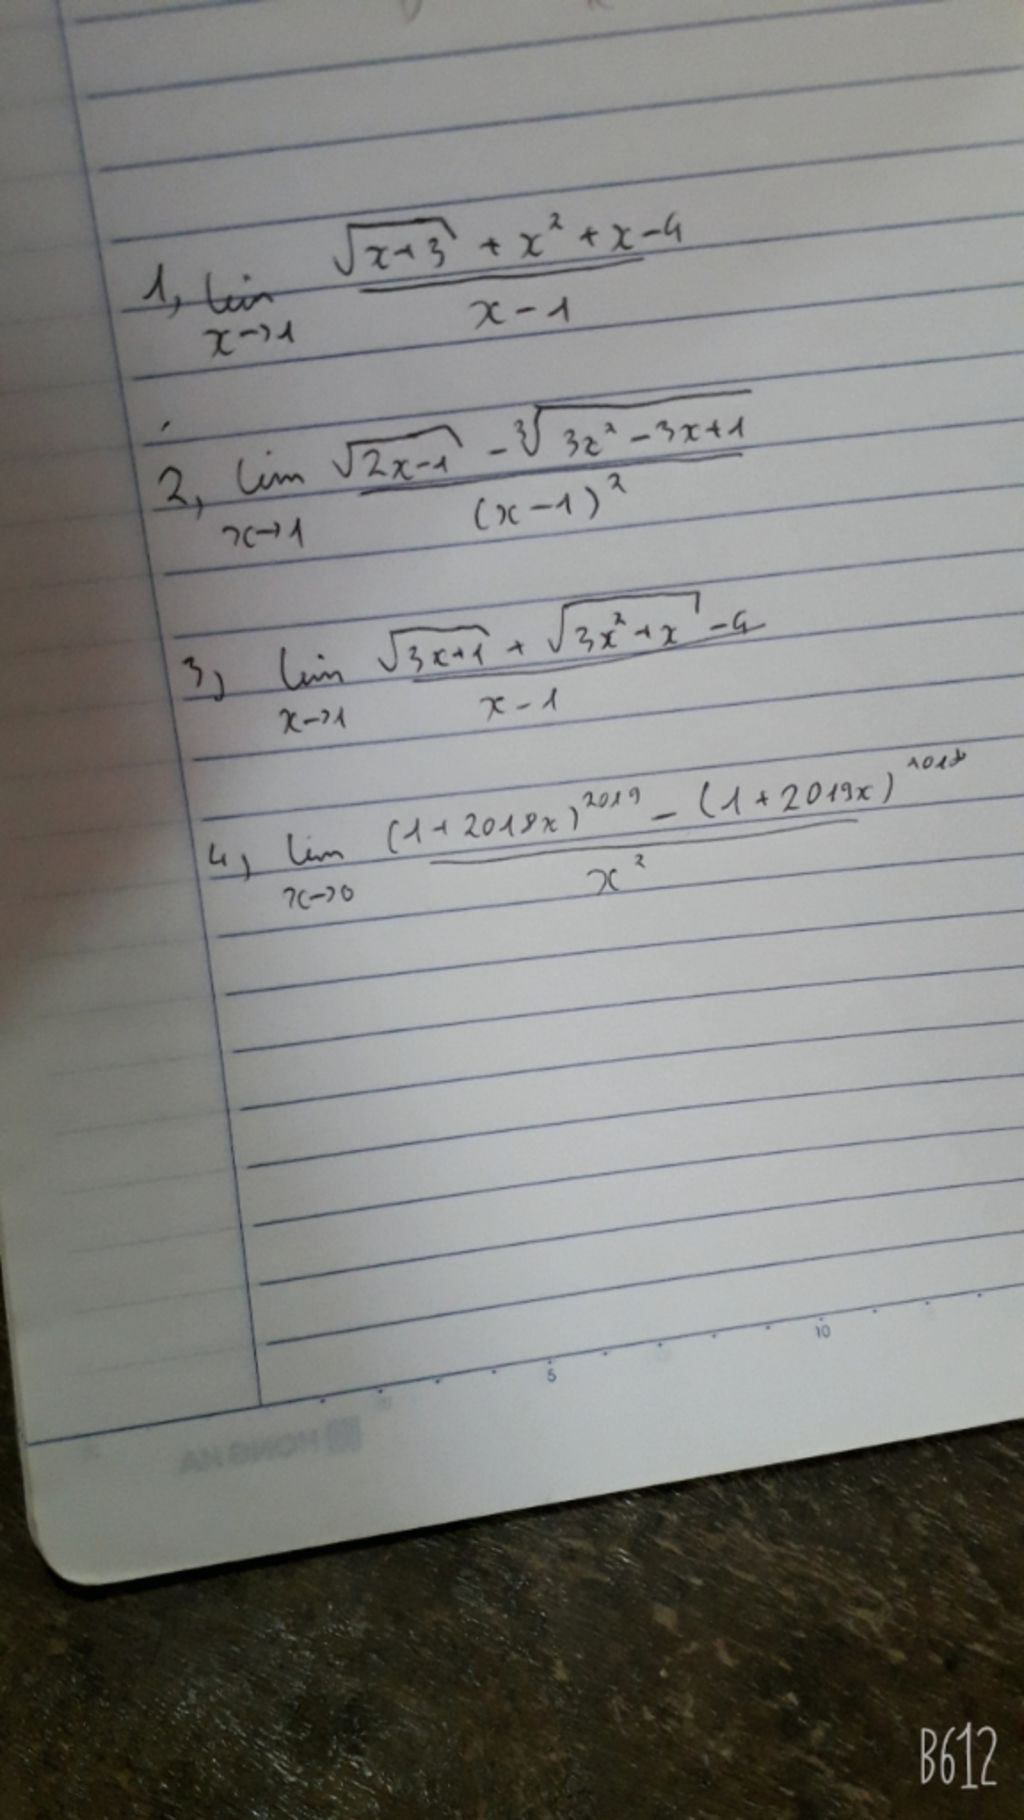 1, lim √(x+3) + x² + x - 4
x→1 x - 1
2, lim √(2x-1) - ∛(3x² - 3x + 1)
x→1 (x - 1)²
3, lim √(3x+1) + √(3x² + x) - 4
x→1 x - 1
4, lim (1 + 2018x)²⁰¹⁹ - (1 + 2019x)²⁰¹⁸
x→0 x²
5 10
HONG HA
B612